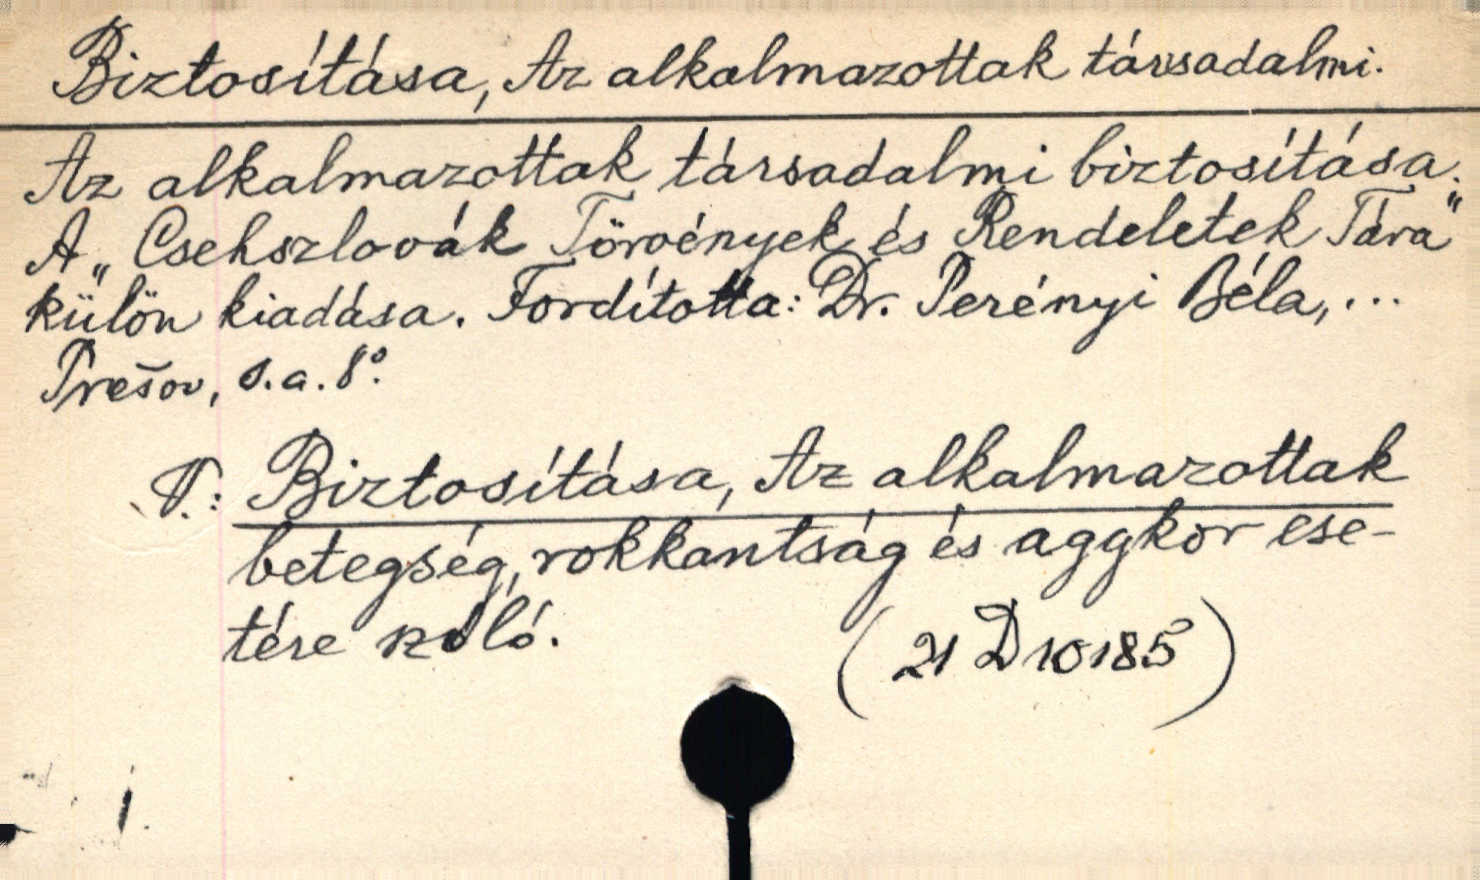 Biztosítása, Az alkalmazottak társadalmi.
Az alkalmazottak társadalmi biztosítása.
A „Csehszlovák Törvények és Rendeletek Tára"
külön kiadása. Fordította: Dr. Perényi Béla, ...
Prešov, s.a. 8°.
V.: Biztosítása, Az alkalmazottak
betegség, rokkantság és aggkor ese-
tére szóló.
(21 D 10185)